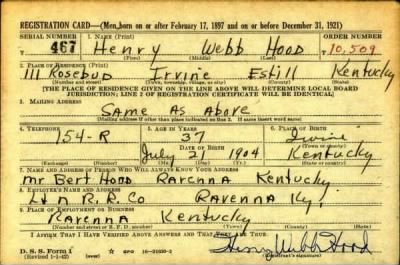 REGISTRATION CARD—(Men born on or after February 17, 1897 and on or before December 31, 1921)
SERIAL NUMBER 1. NAME (Print) ORDER NUMBER
467 Henry Webb Hood 10,509
(First) (Middle) (Last)
2. PLACE OF RESIDENCE (Print)
111 Rosebud Irvine Estill Kentucky
(Number and street) (Town, township, village, or city) (County) (State)
[THE PLACE OF RESIDENCE GIVEN ON THE LINE ABOVE WILL DETERMINE LOCAL BOARD
JURISDICTION; LINE 2 OF REGISTRATION CERTIFICATE WILL BE IDENTICAL]
3. MAILING ADDRESS
Same As Above
[Mailing address if other than place indicated on line 2. If same insert word same]
4. TELEPHONE 5. AGE IN YEARS 6. PLACE OF BIRTH
154-R 37 Irvine
DATE OF BIRTH (Town or county)
July 21 1904 Kentucky
(Exchange) (Number) (Mo.) (Day) (Yr.) (State or country)
7. NAME AND ADDRESS OF PERSON WHO WILL ALWAYS KNOW YOUR ADDRESS
Mr Bert Hood Ravenna Kentucky
8. EMPLOYER'S NAME AND ADDRESS
L & N R.R. Co Ravenna Ky.
9. PLACE OF EMPLOYMENT OR BUSINESS
Ravenna Kentucky
(Number and street or R. F. D. number) (Town) (County) (State)
I AFFIRM THAT I HAVE VERIFIED ABOVE ANSWERS AND THAT THEY ARE TRUE.
D. S. S. Form 1 GPO Henry Webb Hood
(Revised 1-1-42) (over)